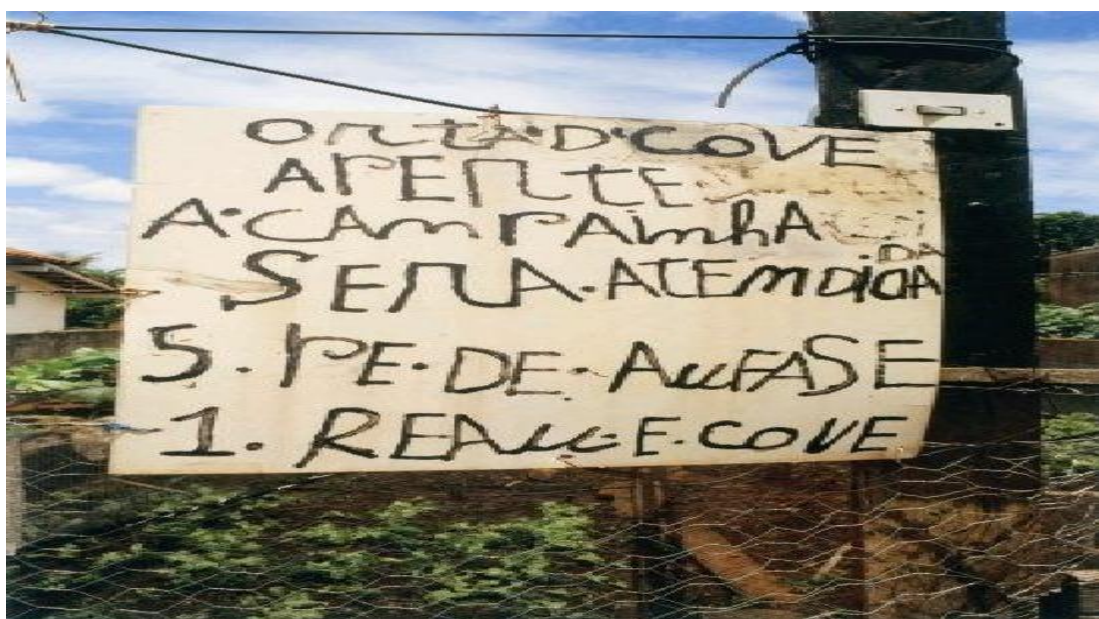 ORTA.D.COVE
APERTE
A.CAMPAINHA
SERA.ATENDIDA
5.PE.DE.ALFASE
1.REAL.E.COVE